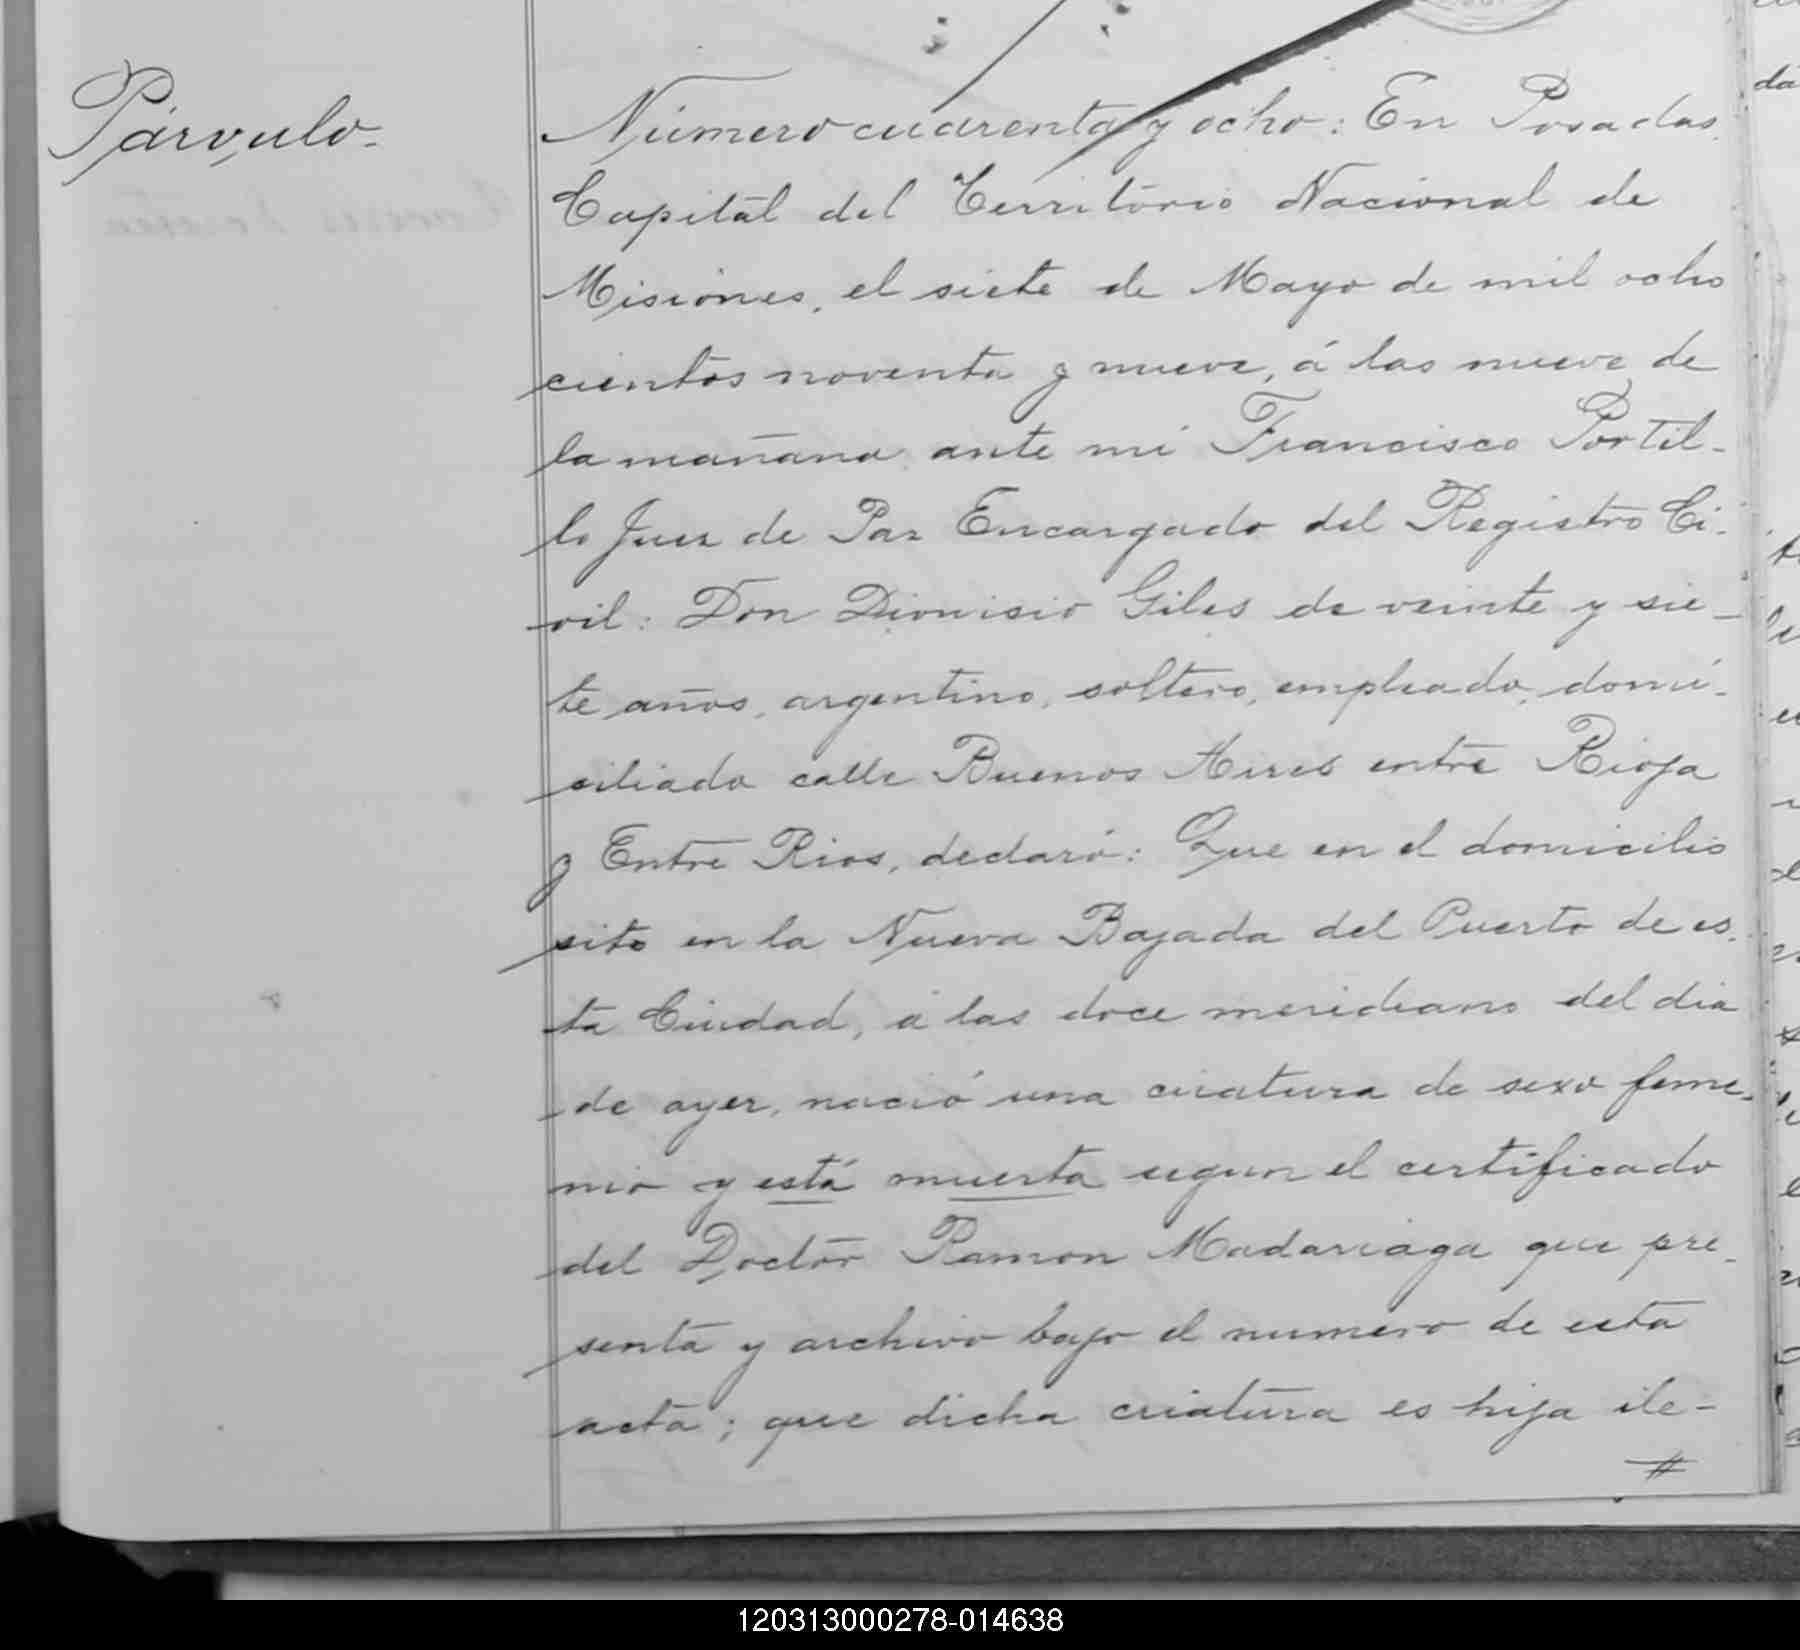 Párvulo-
Número cuarenta y ocho: En Posadas
Capital del Territorio Nacional de
Misiones, el siete de Mayo de mil ocho
cientos noventa y nueve, á las nueve de
la mañana ante mi Francisco Portil-
lo Juez de Paz Encargado del Registro Ci-
vil: Don Dionisio Giles de veinte y sie-
te años, argentino, soltero, empleado, domi-
ciliado calle Buenos Aires entre Rioja
y Entre Rios, declaró: Que en el domicilio
sito en la Nueva Bajada del Puerto de es-
ta Ciudad, á las doce meridiano del dia
de ayer, nació una criatura de sexo feme-
nio y está muerta segun el certificado
del Doctor Ramon Madariaga que pre-
senta y archivo bajo el numero de esta
acta; que dicha criatura es hija ile-
#
120313000278-014638